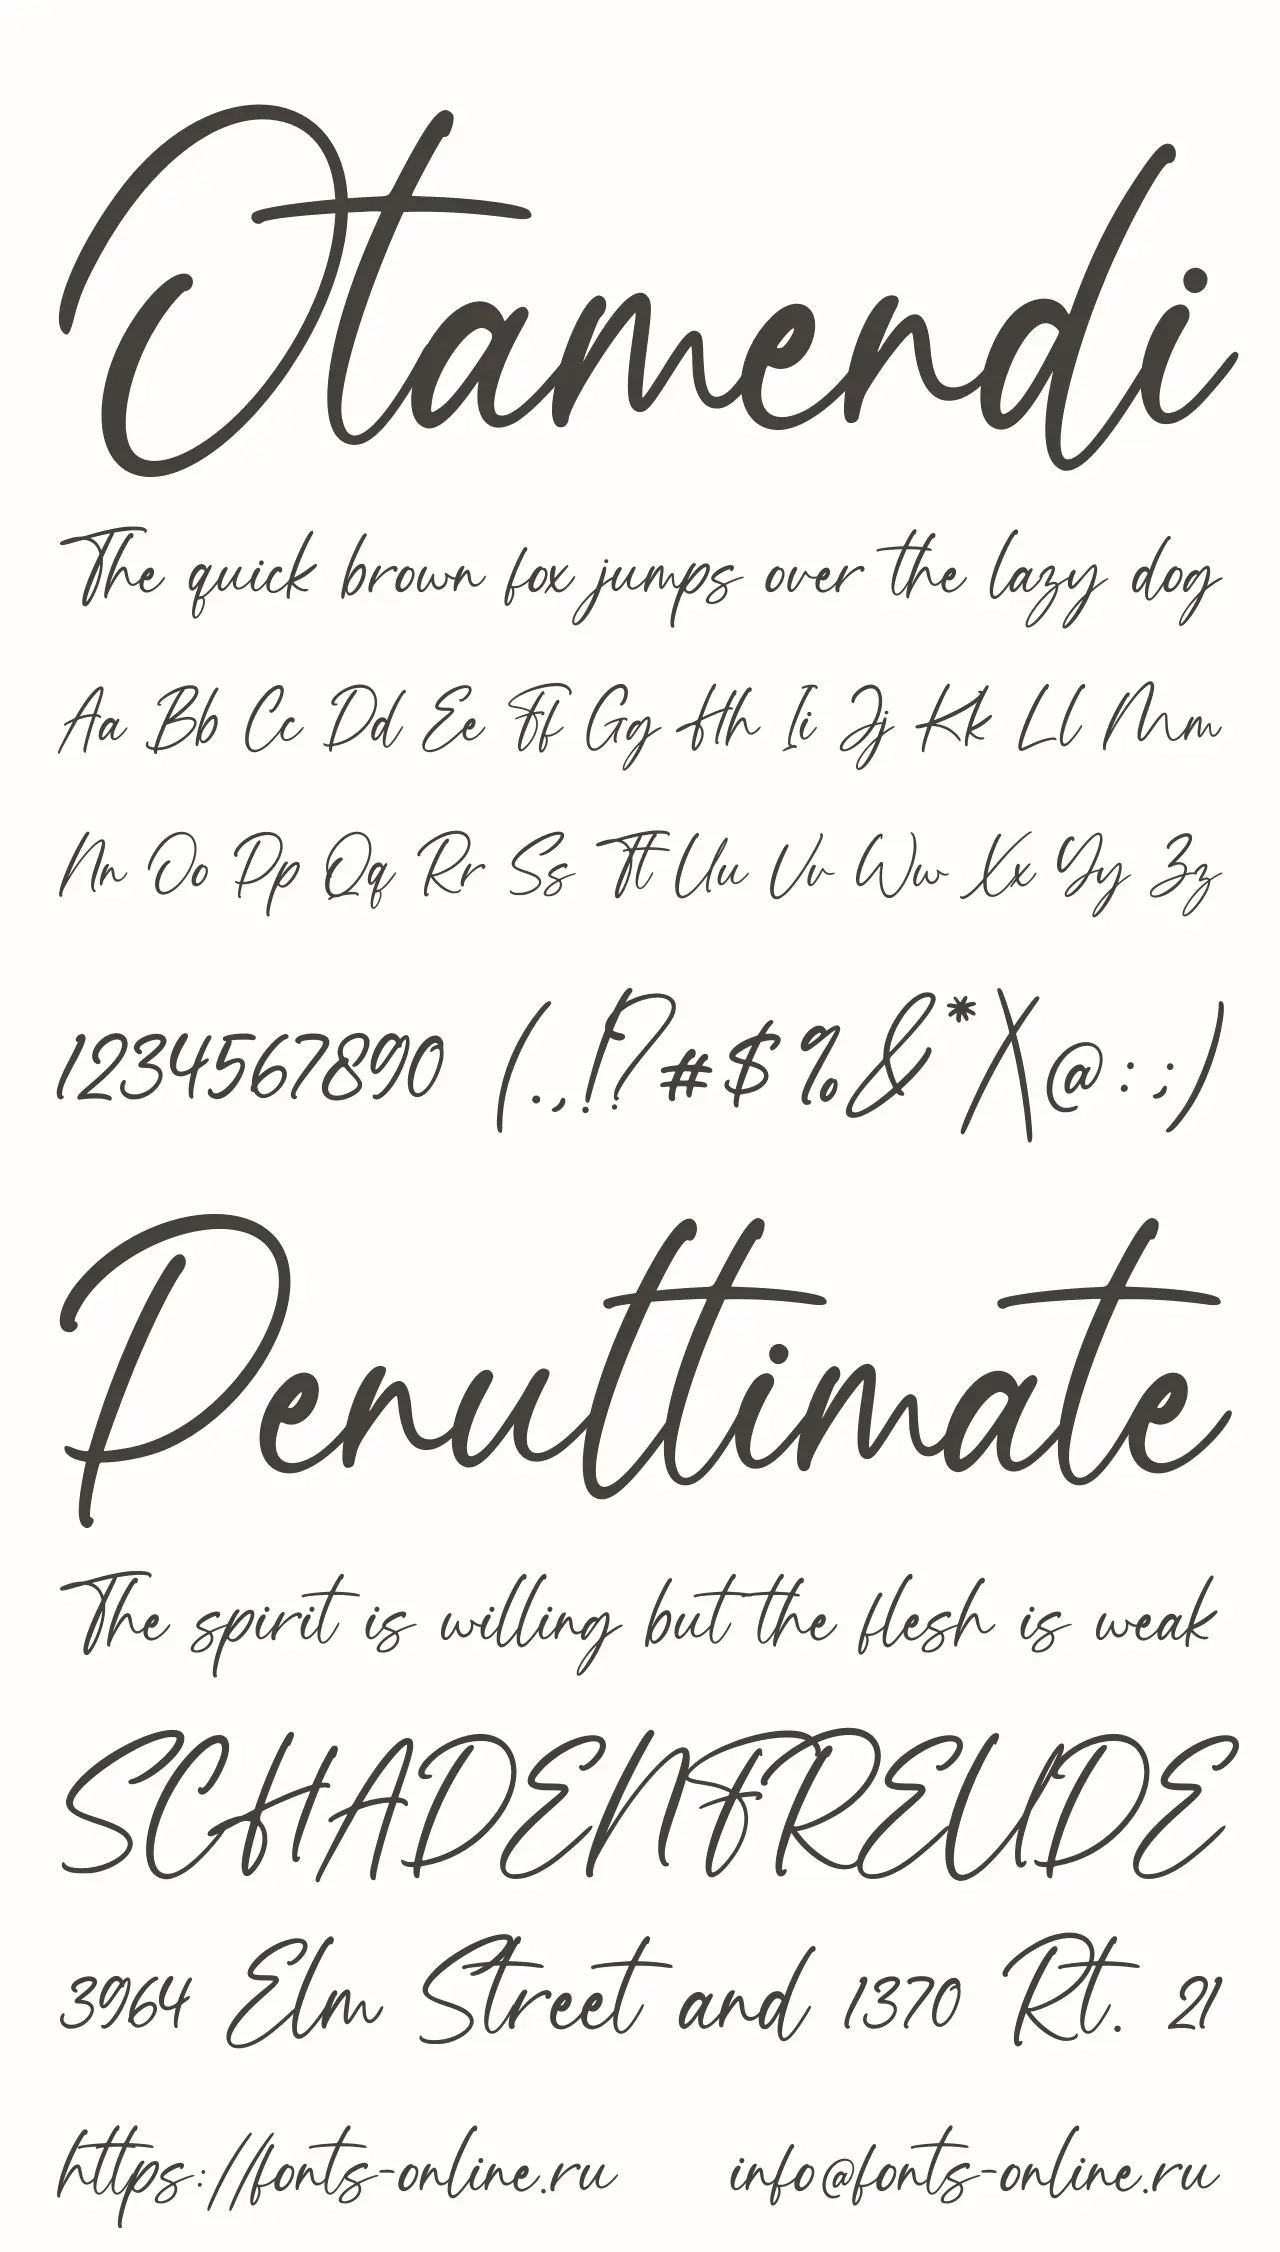 Otamendi
The quick brown fox jumps over the lazy dog
Aa Bb Cc Dd Ee Ff Gg Hh Ii Jj Kk Ll Mm
Nn Oo Pp Qq Rr Ss Tt Uu Vv Ww Xx Yy Zz
1234567890 (.,!?#$%&*X@:;)
Penultimate
The spirit is willing but the flesh is weak
SCHADENFREUDE
3964 Elm Street and 1370 Rt. 21
https://fonts-online.ru info@fonts-online.ru